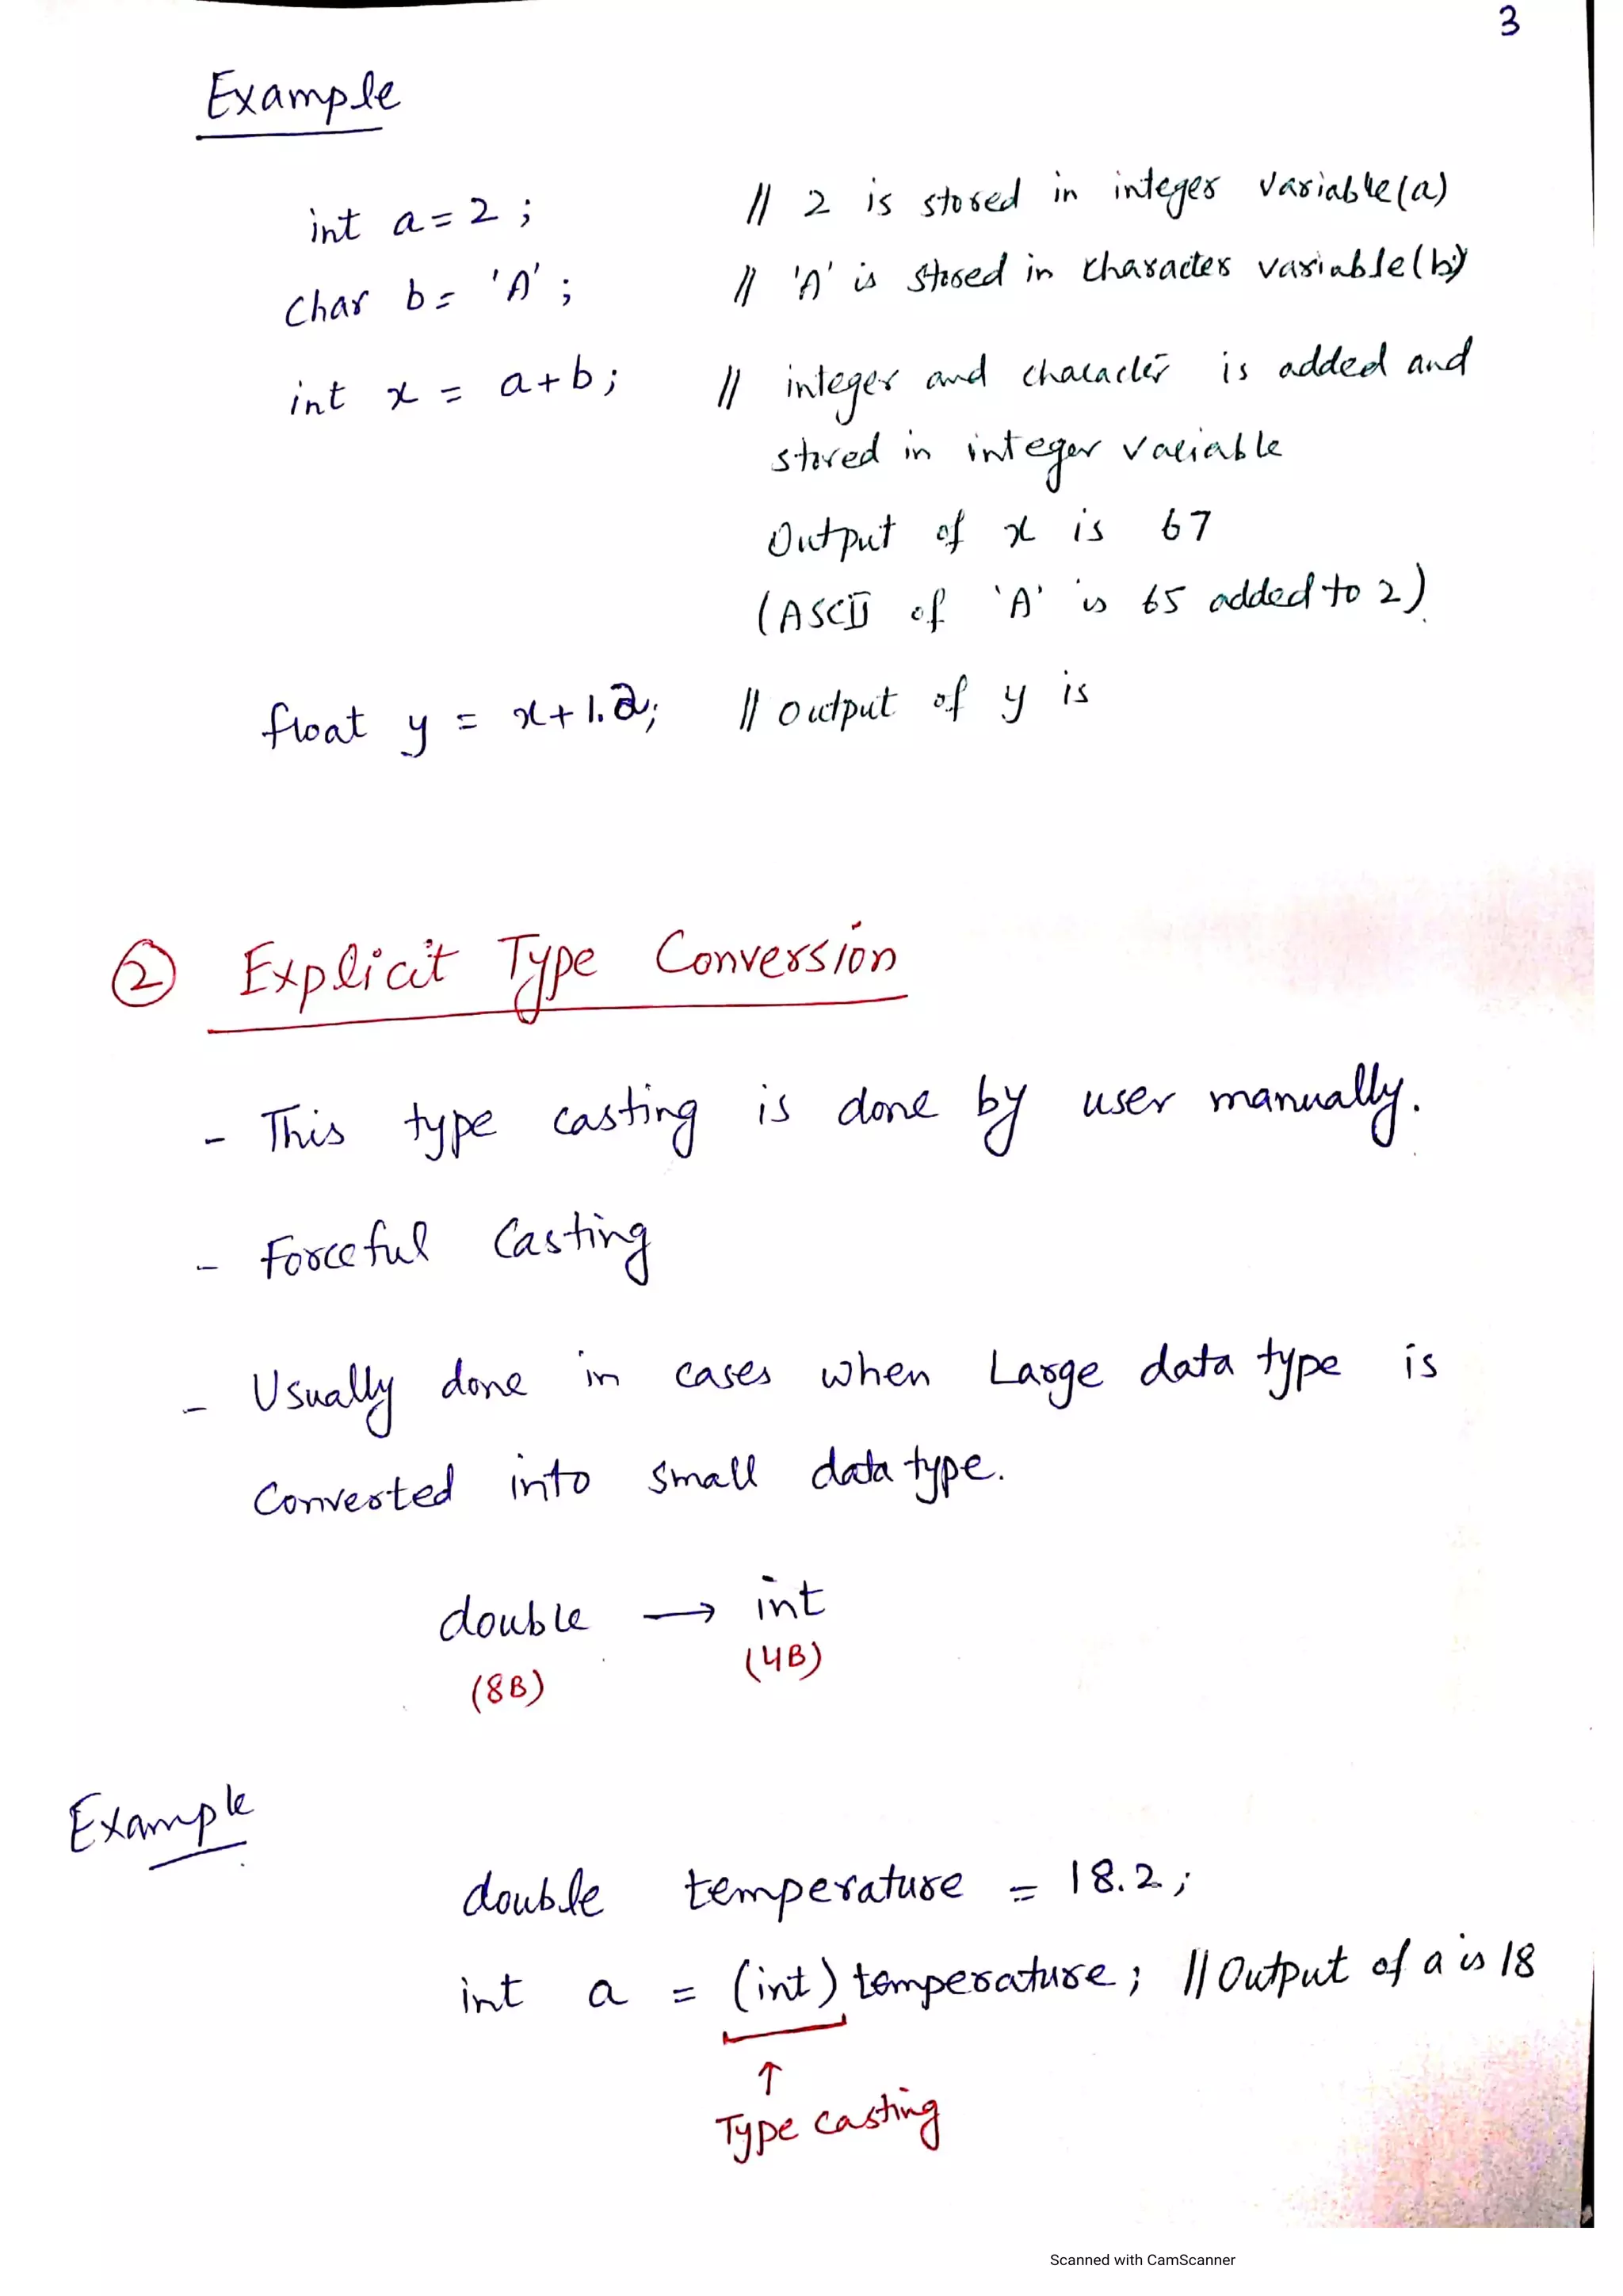 3
Example
int a = 2 ; // 2 is stored in integer variable(a)
Char b = 'A' ; // 'A' is stored in character variable(b)
int x = a + b ; // integer and character is added and
stored in integer variable
Output of x is 67
(ASCII of 'A' is 65 added to 2)
float y = x + 1.2; // output of y is
② Explicit Type Conversion
- This type casting is done by user manually.
- Forceful Casting
- Usually done in cases when Large data type is
Converted into small data type.
double → int
(8B) (4B)
Example
double temperature = 18.2 ;
int a = (int) temperature ; // Output of a is 18
↑
Type casting
Scanned with CamScanner